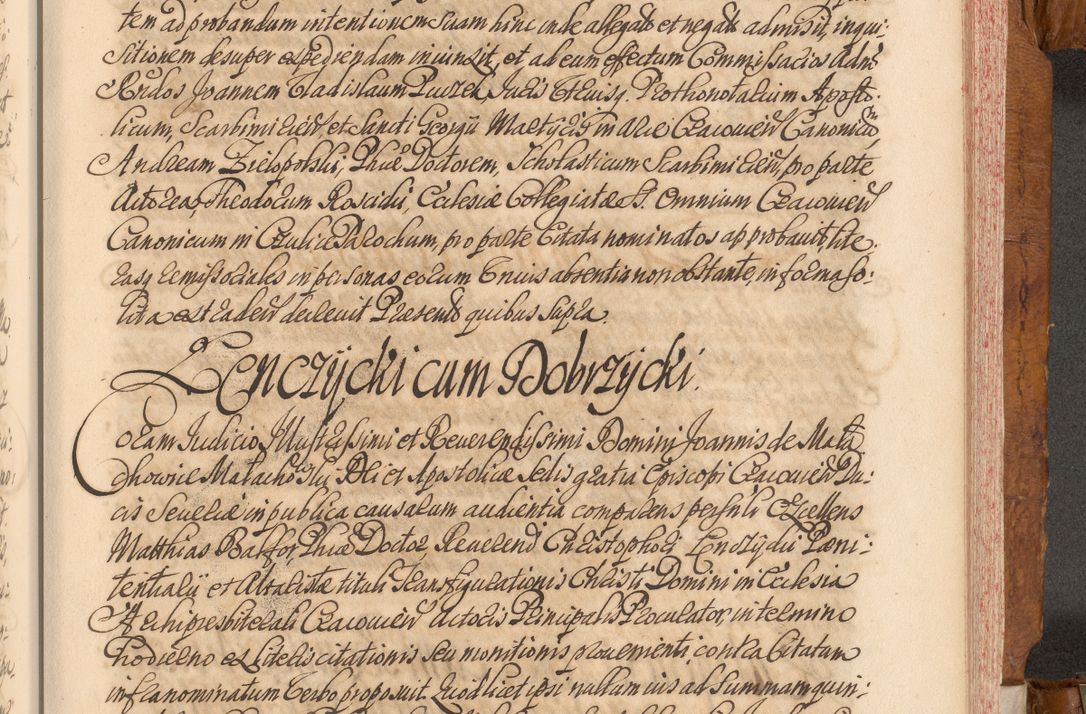 tem ad probandum intentionem suam hinc inde allegat et negat admisit, inqui-
sitionem desuper expediendam iniunxit, et ad eum effectum Commissarios Adm
Rndos Joannem Vladislaum Pucrek, Juris Utriusq. Prothonotarium Aposto-
licum, Scarbimirien et Sancti Georgii Martyris in Arce Cracovien Canonicum
Andream Zielopolski, Phiae Doctorem, Scholasticum Scarbimirien, pro parte
Actorea, Theodorum Roscidii, Ecclesiae Collegiatae S. Omnium Cracovien
Canonicum in Parochum, pro parte Citata nominatos approbavit lite-
rasq remissoriales in personas eorum unius absentia non obstante, in forma so-
lita extraden decrevit Praesent quibus supra.
Lenczycki cum Dobrzycki.
Coram Judicio Illustrissimi et Reverendissimi Domini Joannis de Mala
chowice Małachowski Dei et Apostolicae Sedis gratia Episcopi Cracovien Du-
cis Severiae in publica causarum audientia comparens personli Excellens
Matthias Balfor Phiae Doctor, Reverend Christophori Lenczycki Paeni-
tentiarii et Altaristae tituli Transfigurationis Christi Domini in Ecclesia
Archipresbiterali Cracovien Actoris Principalis Procurator, in termino
hodierno ex literis citationis seu monitionis provenienti, contra Citatum
infranominatum verbo proposuit. Quod licet ipsi nullum ius ad summam quin-